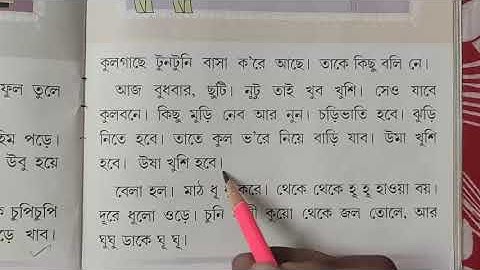 কুলগাছে টুনটুনি বাসা ক'রে আছে। তাকে কিছু বলি নে।
আজ বুধবার, ছুটি। নুটু তাই খুব খুশি। সেও যাবে
কুলবনে। কিছু মুড়ি নেব আর নুন। চড়িভাতি হবে। ঝুড়ি
নিতে হবে। তাতে কুল ভ'রে নিয়ে বাড়ি যাব। উমা খুশি
হবে। ঊষা খুশি হবে।
বেলা হল। মাঠ ধূ করে। থেকে থেকে হূ হূ হাওয়া বয়।
দূরে ধুলো ওড়ে। চুনি কুয়ো থেকে জল তোলে, আর
ঘুঘু ডাকে ঘূ ঘূ।
ফুল তুলে
পড়ে।
উবু হয়ে
চুপিচুপি
খাব।